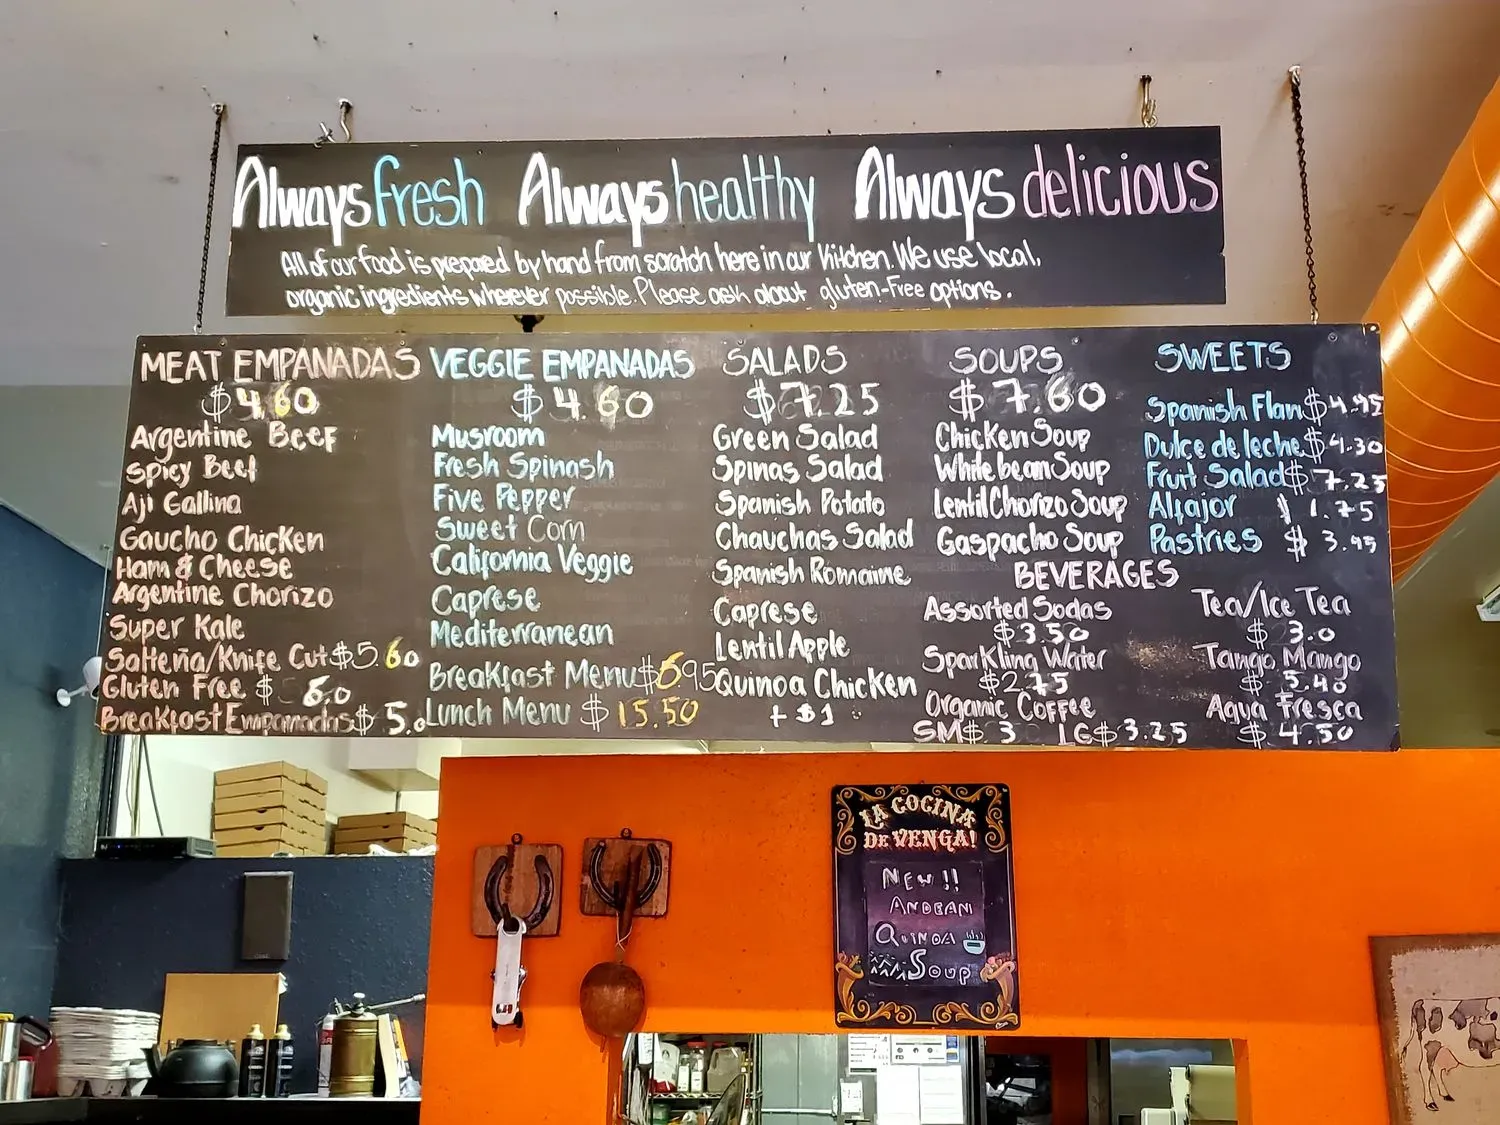 Always fresh Always healthy Always delicious
All of our food is prepared by hand from scratch here in our Kitchen. We use local,
organic ingredients wherever possible. Please ask about gluten-Free options.
MEAT EMPANADAS
$4.60
Argentine Beef
Spicy Beef
Aji Gallina
Gaucho Chicken
Ham & Cheese
Argentine Chorizo
Super Kale
Salteña/Knife Cut $5.60
Gluten Free $ 6.0
Breakfast Empanadas $ 5.0
VEGGIE EMPANADAS
$4.60
Musroom
Fresh Spinash
Five Pepper
Sweet Corn
California Veggie
Caprese
Mediterranean
Breakfast Menu $6.95
Lunch Menu $15.50
SALADS
$7.25
Green Salad
Spinas Salad
Spanish Potato
Chauchas Salad
Spanish Romaine
Caprese
Lentil Apple
Quinoa Chicken
+ $1
SOUPS
$7.60
Chicken Soup
White bean Soup
Lentil Chorizo Soup
Gaspacho Soup
SWEETS
Spanish Flan $4.95
Dulce de leche $4.30
Fruit Salad $7.25
Alfajor $ 1.75
Pastries $ 3.95
BEVERAGES
Assorted Sodas
$3.50
Sparkling Water
$2.75
Organic Coffee
SM $ 3 LG $3.25
Tea/Ice Tea
$ 3.0
Tango Mango
$ 5.40
Agua Fresca
$ 4.50
LA COCINA
DE VENGA!
NEW !!
ANDEAN
QUINOA
SOUP